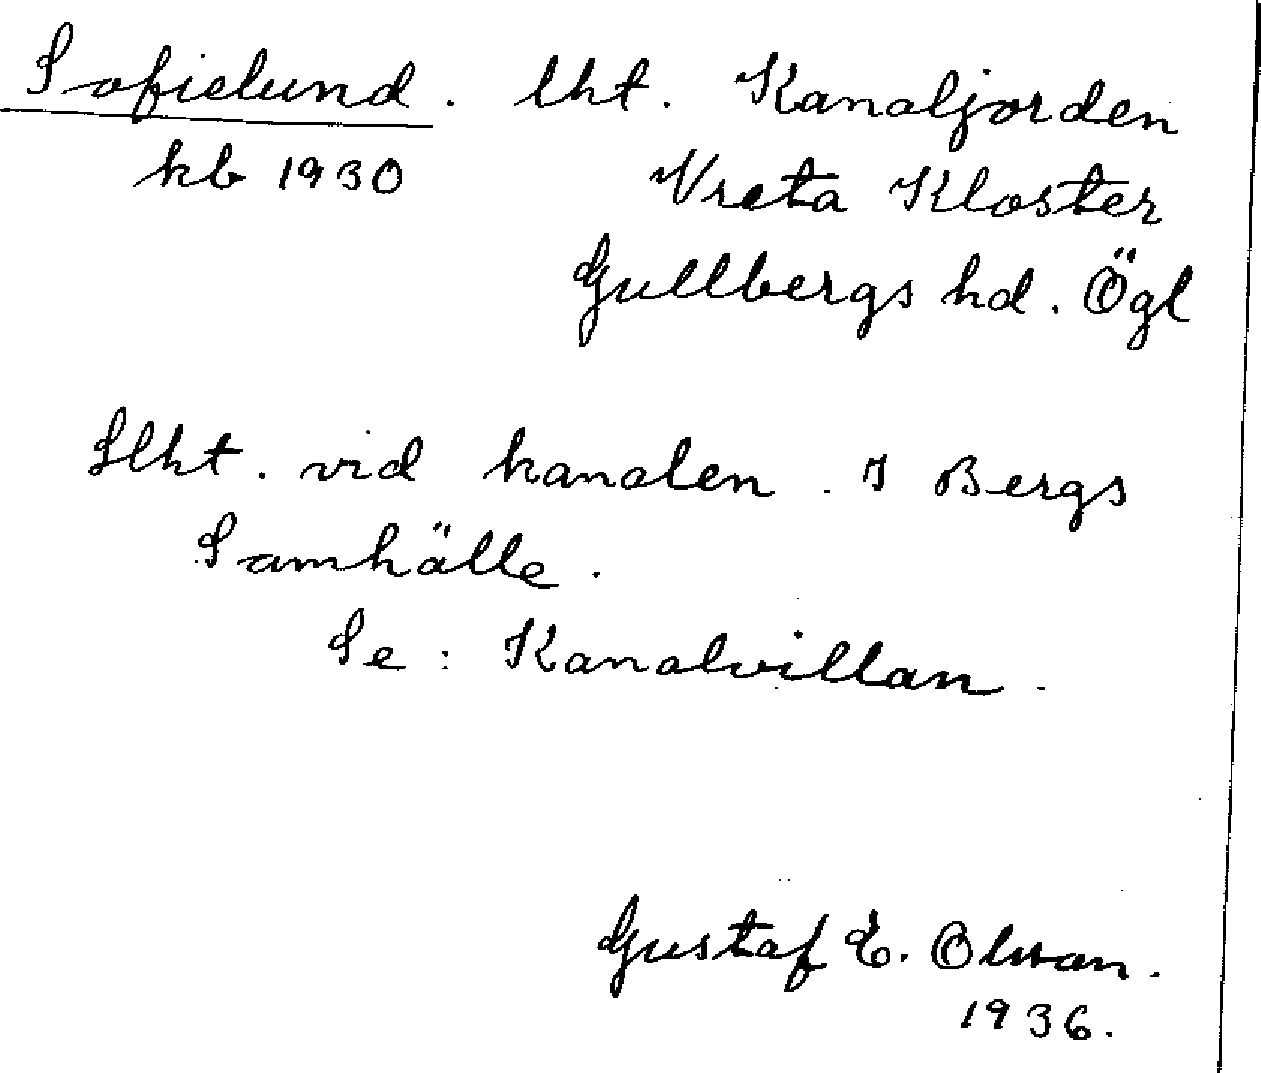 Sofielund. lht. Kanaljorden
kb 1930 Vreta Kloster
Gullbergs hd. Ögl
Slht. vid kanalen. I Bergs
Samhälle.
Se: Kanalvillan.
Gustaf E. Olsson.
1936.